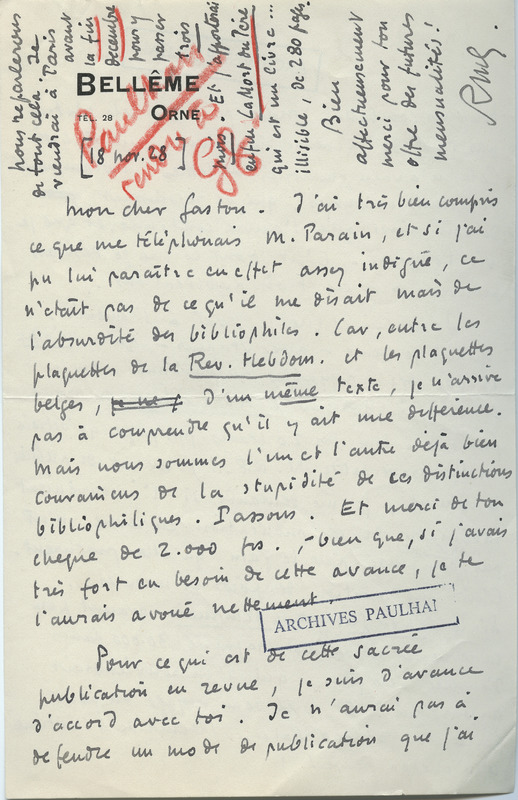 BELLÊME
TEL. 28
ORNE
18 nov. 28
Paulhan
rendre à
GG
Mon cher Gaston. J'ai très bien compris
ce que me téléphonais M. Parain, et si j'ai
pu lui paraître en effet assez indigné, ce
n'était pas de ce qu'il me disait mais de
l'absurdité des bibliophiles. Car, entre les
plaquettes de la Rev. Hebdom. et les plaquettes
belges, d'un même texte, je n'arrive
pas à comprendre qu'il y ait une différence.
Mais nous sommes l'un et l'autre déjà bien
convaincus de la stupidité de ces distinctions
bibliophiliques. Passons. Et merci de ton
chèque de 2.000 frs., – bien que, si j'avais
très fort eu besoin de cette avance, je te
l'aurais avoué nettement.
ARCHIVES PAULHAN
Pour ce qui est de cette sacrée
publication en revue, je suis d'avance
d'accord avec toi. Je n'aurai pas à
défendre un mode de publication que j'ai
nous reparlerons
de tout cela. Je
viendrai à Paris
avant
la fin
décembre
pour y
passer
trois
jours. Et j'apporterai
enfin La Mort du Père
qui est un livre ...
illisible, de 280 pages.
Bien
affectueusement
merci pour ton
offre des futures
mensualités!
RMG.